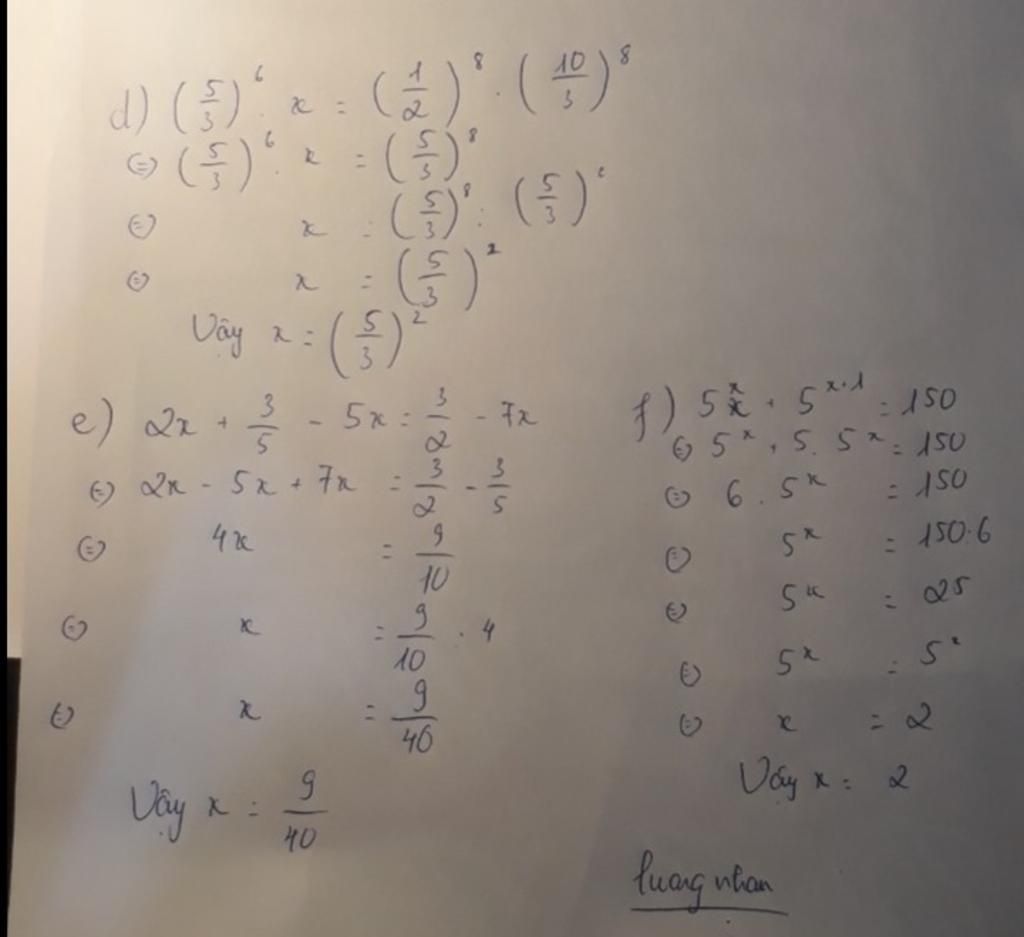 d) (5/3)^6 . x = (1/2)^8 . (10/3)^8
⇔ (5/3)^6 . x = (5/3)^8
⇔ x = (5/3)^8 : (5/3)^6
⇔ x = (5/3)^2
Vậy x = (5/3)^2
e) 2x + 3/5 - 5x = 3/2 - 7x
⇔ 2x - 5x + 7x = 3/2 - 3/5
⇔ 4x = 9/10
⇔ x = 9/10 : 4
⇔ x = 9/40
Vậy x = 9/40
f) 5^x + 5^{x+1} = 150
⇔ 5^x + 5. 5^x = 150
⇔ 6 . 5^x = 150
⇔ 5^x = 150:6
⇔ 5^x = 25
⇔ 5^x = 5^2
⇔ x = 2
Vậy x = 2
luang nhan